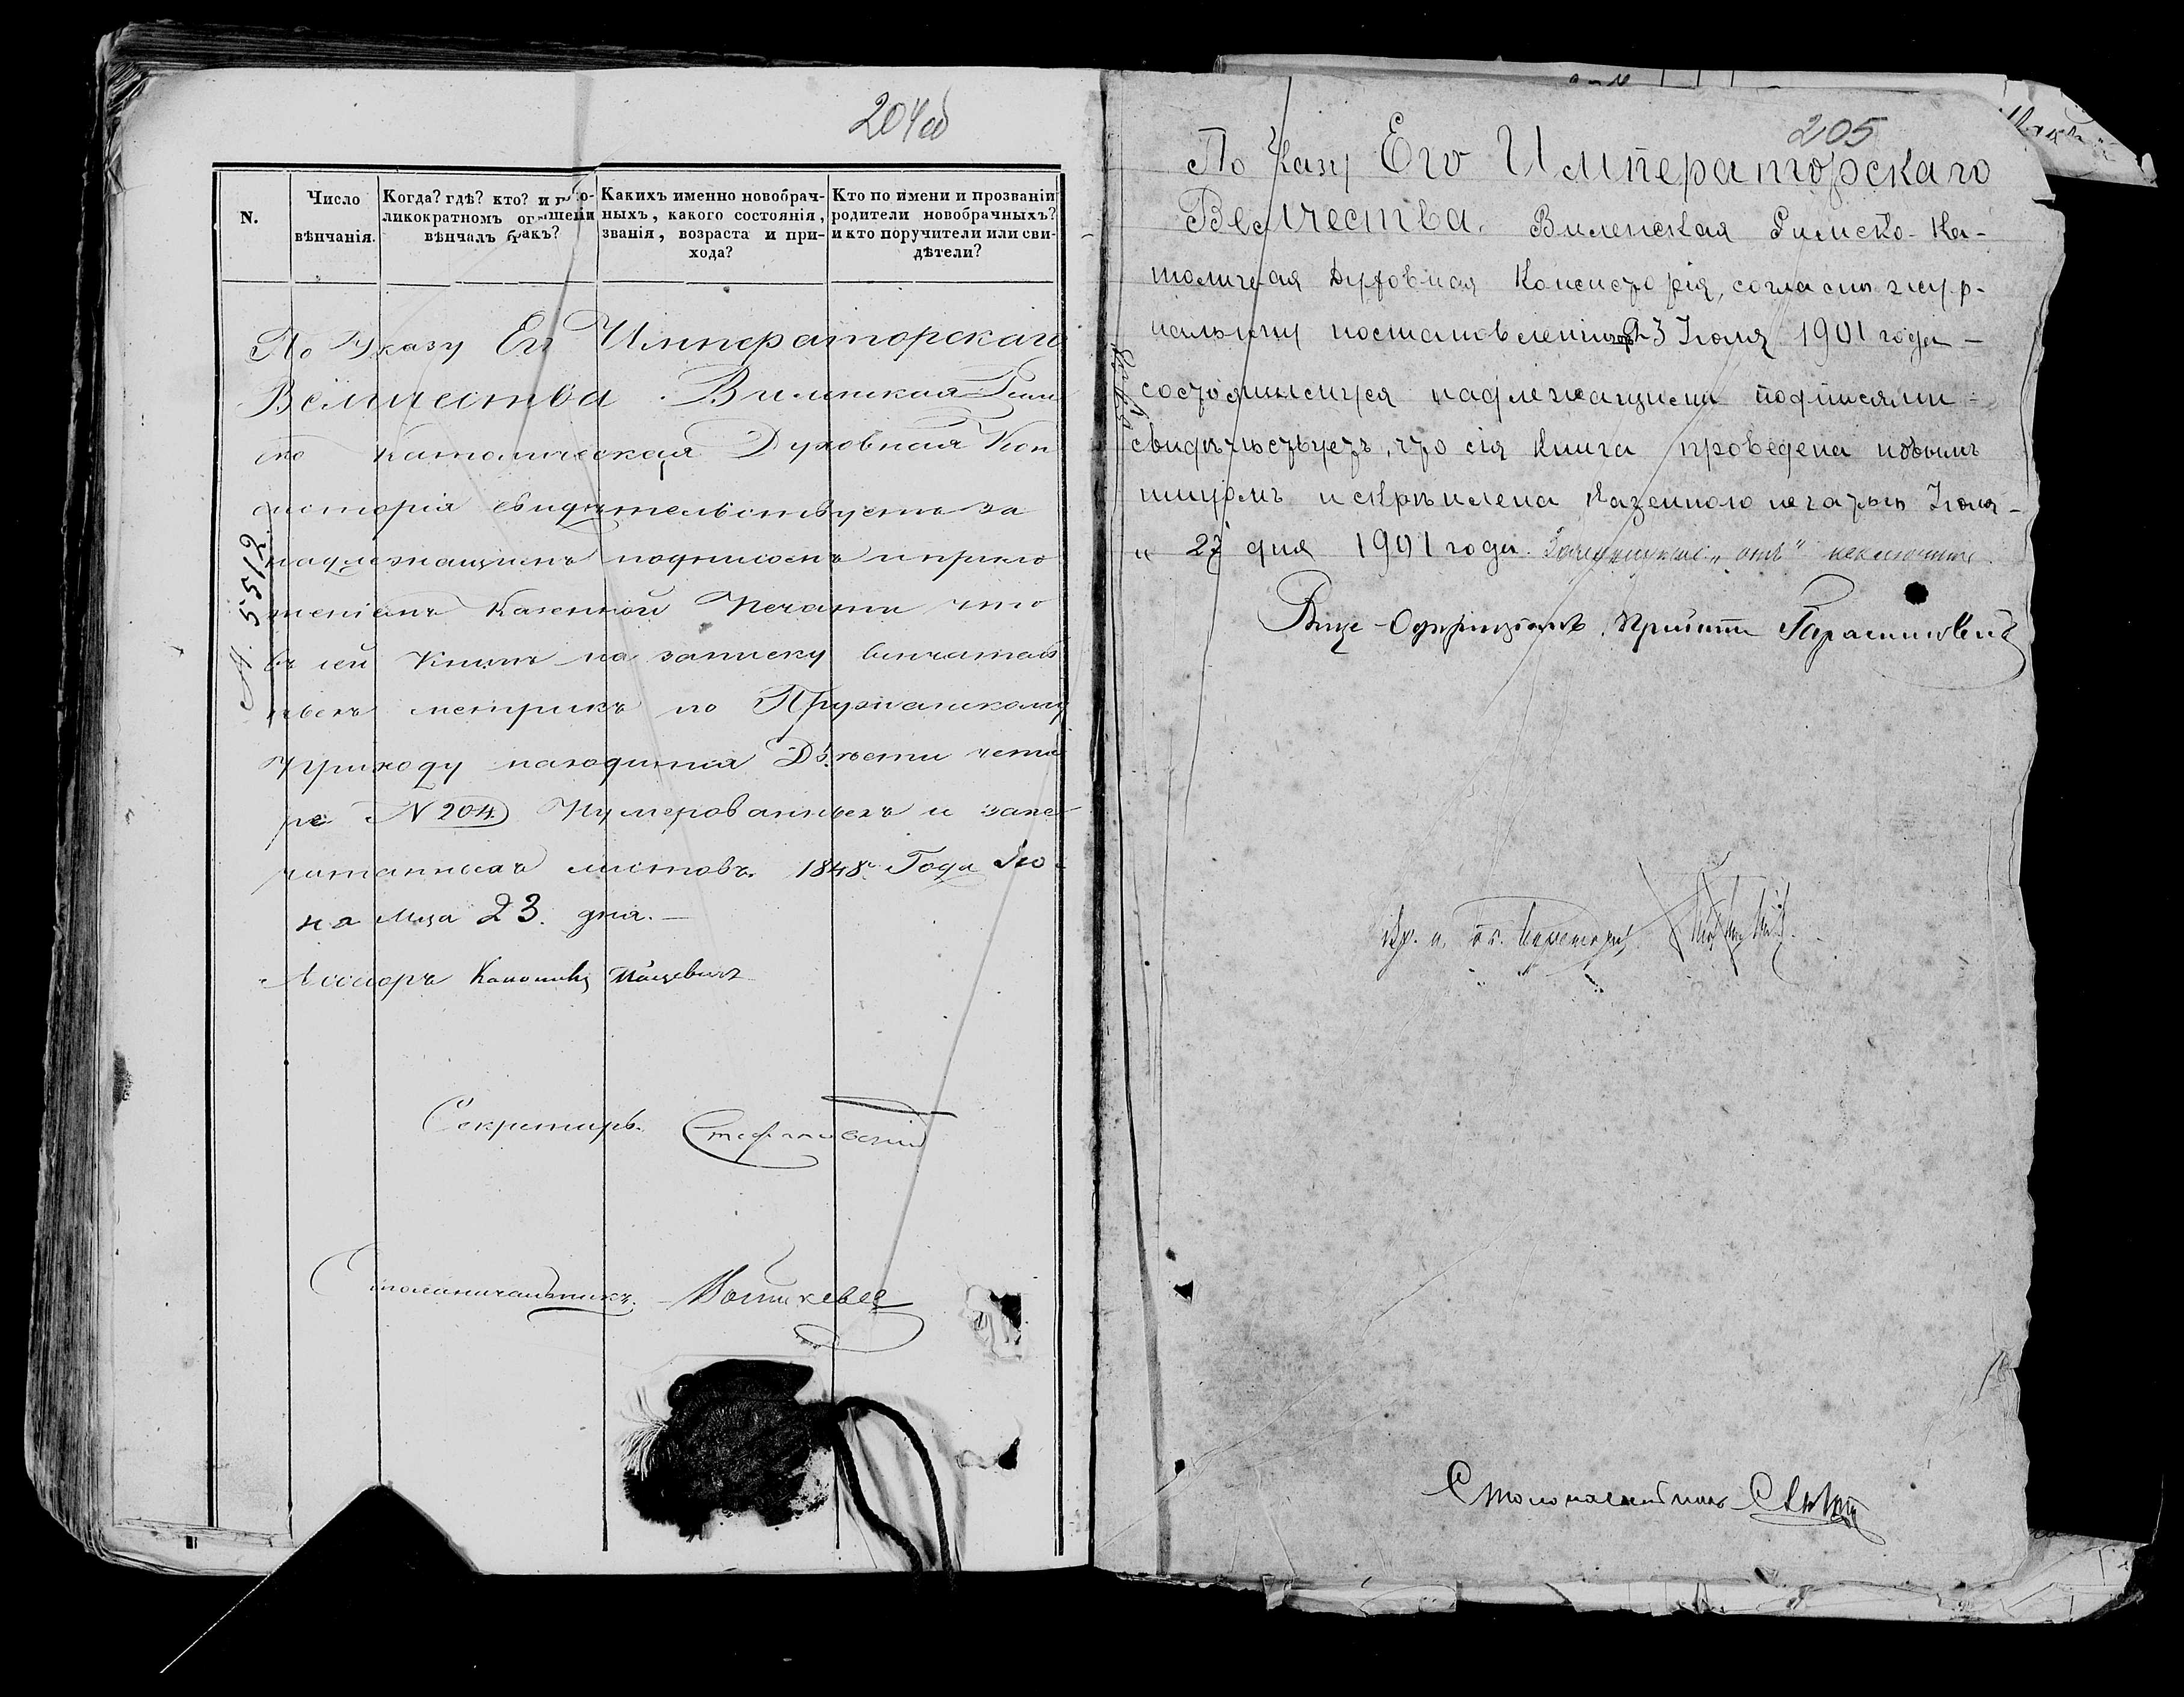 204об
N.
Число
вѣнчанія.
Когда? гдѣ? кто? и по-
ликократномъ оглашеніи
вѣнчалъ бракъ?
Какихъ именно новобрач-
ныхъ, какого состоянія,
званія, возраста и при-
хода?
Кто по имени и прозванію
родители новобрачныхъ?
и кто поручители или сви-
дѣтели?
По Указу Его Императорскаго
Величества Виленская Рим
ско Католическая Духовная Кон
систорія свидѣтельствуетъ за
надлежащимъ подписомъ и прило
женіемъ Казенной Печати что
въ сей Книгѣ на записку венчаталь
ныхъ метрикъ по Пружанскому
Приходу находится Двѣсти четы
ре N 204 Нумерованныхъ и запе
чатанныхъ листовъ. 1848 Года Ію-
на Мца 23. дня.—
N. 5512
Ассесоръ Каноникъ
Секретарь.
Столоначальникъ.
205
По Указу Его Императорскаго
Величества. Виленская Римско-Ка-
толическая Духовная Консисторія, согласно жур-
нальному постановленію 23 Іюля 1901 года —
состоявшемуся надлежащими подписями
свидѣтельствуетъ, что сія книга проведена новымъ
шнуромъ и скрѣплена Казенною печатью Іюля
„ 27 дня 1901 года. Зачеркнутое „отъ“
Вице-Оффиціалъ, Прелатъ
Столоначальникъ